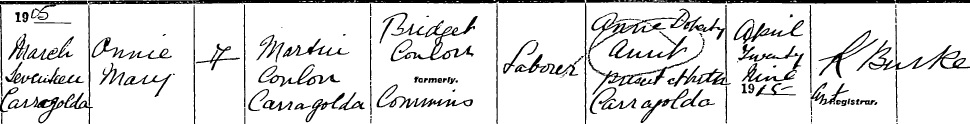 1905
March
Seventeen
Carragolda
Annie
Mary
F
Martin
Conlon
Carragolda
Bridget
Conlon
formerly.
Commins
Laborer
Annie Doherty
Aunt
Present at birth
Carragolda
April
Twenty
Nine
1905
R Burke
Registrar.